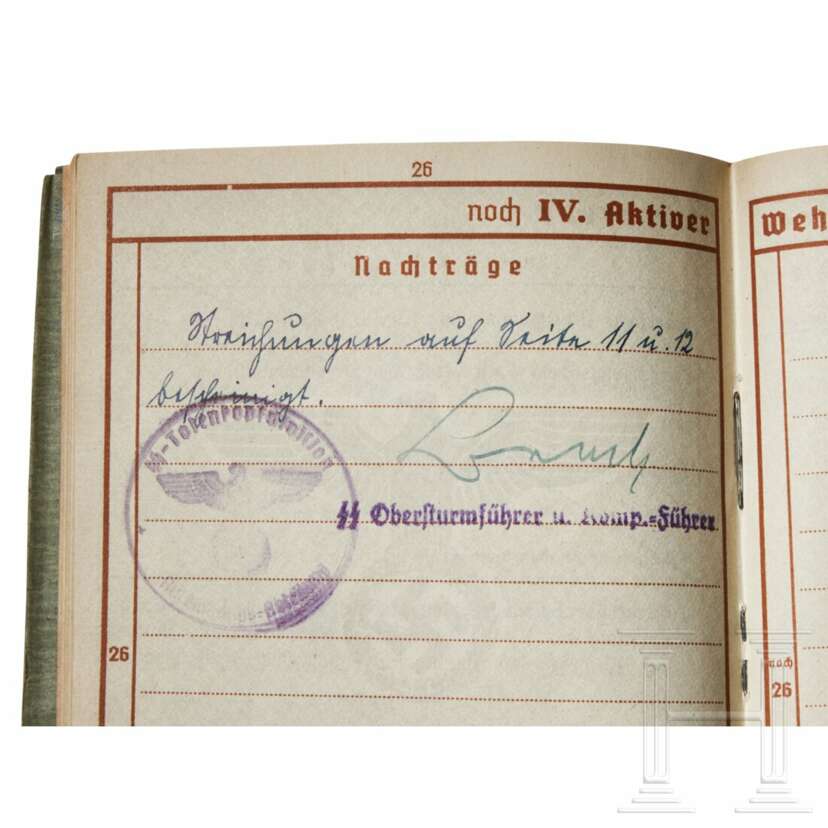 26
noch IV. Aktiver
Weh
Nachträge
Streichungen auf Seite 11 u. 12
bescheinigt.
SS-Totenkopfdivision
SS Obersturmführer u. Komp.-Führer
26
noch
26